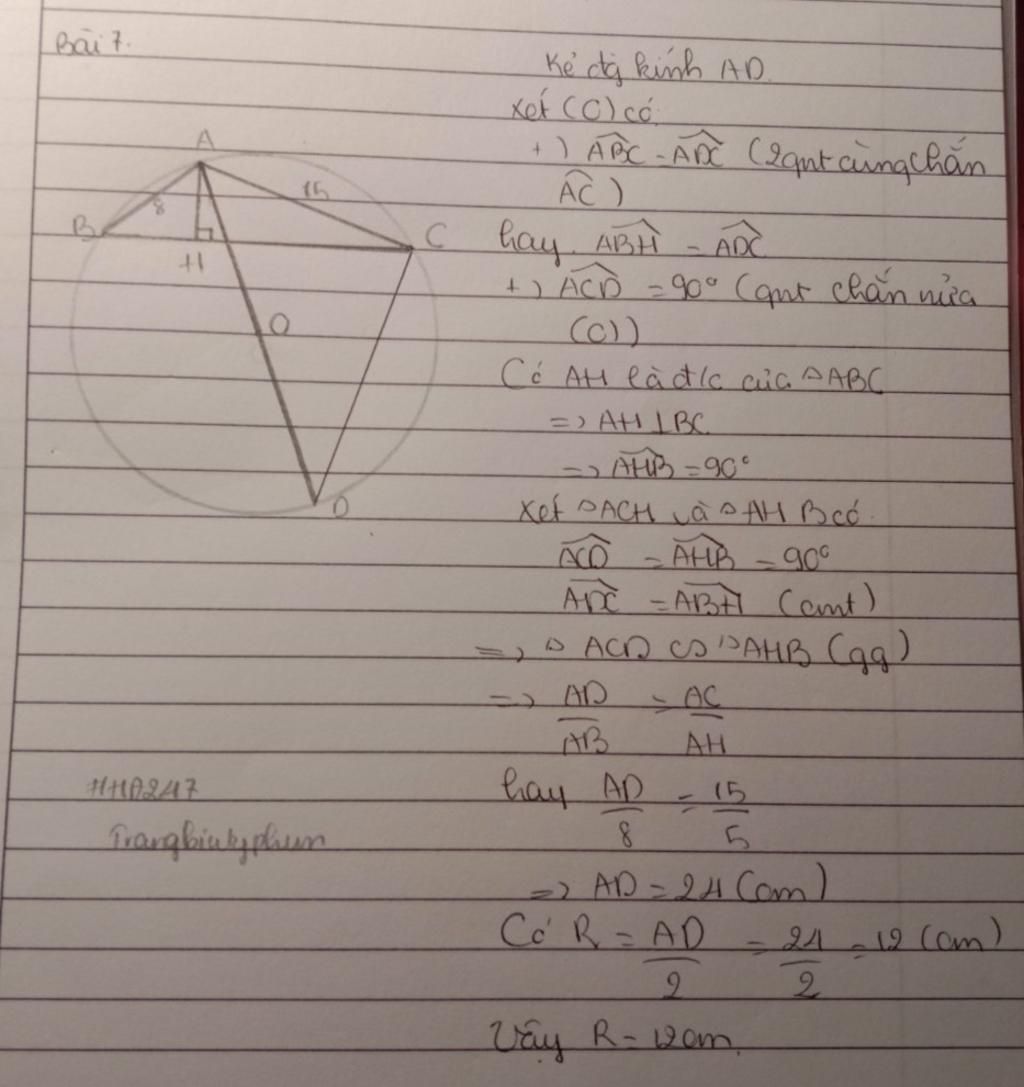 Bài 7.
Kẻ đg kính AD.
Xét (O) có
+) ABC = ADC (2gnt cùng chắn
AC)
hay ABH = ADC
+) ACD = 90° (gnt chắn nửa
(O))
Có AH là đ/c của △ABC
=> AH⊥BC
=> AHB = 90°
Xét △ACH và △AHB có
ACD = AHB = 90°
ADC = ABH (cmt)
=> △ ACD ∽ △AHB (gg)
=> AD/AB = AC/AH
hay AD/8 = 15/5
=> AD = 24 (cm)
Có R = AD/2 = 24/2 = 12 (cm)
Vậy R = 12cm.
A
8
15
B
C
H
O
D
HHA247